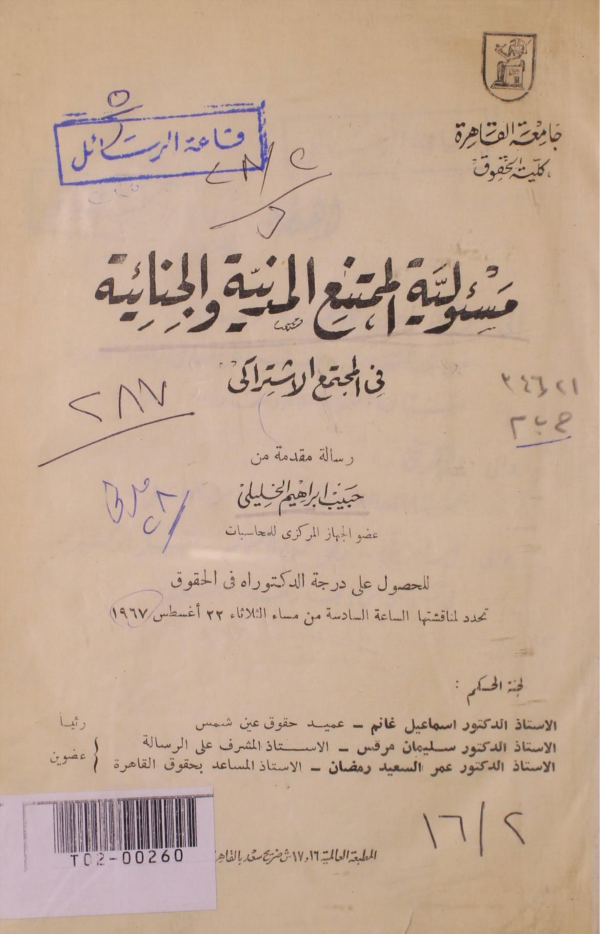 جامعة القاهرة
كلية الحقوق
قاعة الرسائل
مسئولية الممتنع المدنية والجنائية
فى المجتمع الاشتراكى
٢٨٧
رسالة مقدمة من
حبيب ابراهيم الخليلى
عضو الجهاز المركزى للمحاسبات
للحصول على درجة الدكتوراه فى الحقوق
تحدد لمناقشتها الساعة السادسة من مساء الثلاثاء ٢٢ أغسطس ١٩٦٧
لجنة الحكم :
الاستاذ الدكتور اسماعيل غانم – عميد حقوق عين شمس رئيسا
الاستاذ الدكتور سليمان مرقس – الاستاذ المشرف على الرسالة
الاستاذ الدكتور عمر السعيد رمضان – الاستاذ المساعد بحقوق القاهرة
عضوين
١٦/٢
المطبعة العالمية ١٦، ١٧ ش ضريح سعد بالقاهرة
T02-00260